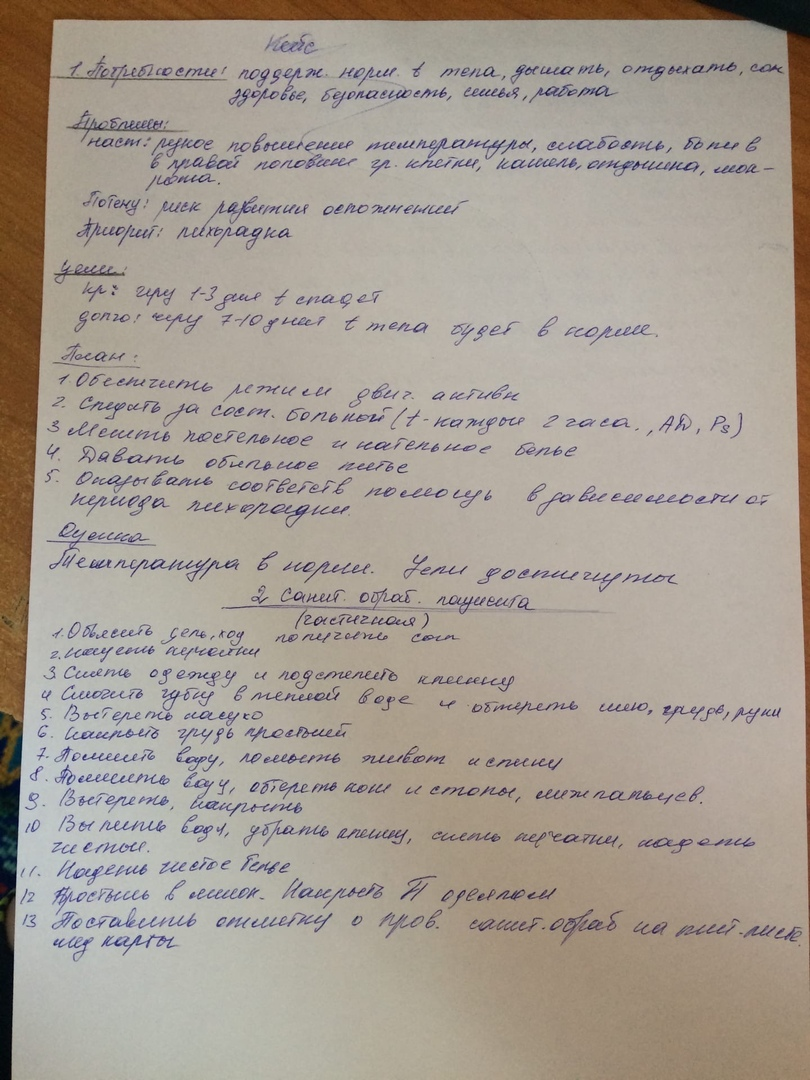 Кейс
1. Потребности: поддерж. норм. t тела, дышать, отдыхать, сон
здоровье, безопасность, семья, работа
Проблемы:
наст: резкое повышение температуры, слабость, боли в
в правой половине гр. клетки, кашель, отдышка, мок-
рота.
Потенц: риск развития осложнений
Приорит: лихорадка
Цели:
кр: чрез 1-3 дня t спадет
долго: через 7-10 дней t тела будет в норме.
План:
1. Обеспечить режим двиг. активн
2. Следить за сост. больной (t - каждые 2 часа., АД, Ps)
3 Менять постельное и нательное белье
4. Давать обильное питье
5. Оказывать соответств помощь в зависимости от
периода лихорадки
Оценка
Температура в норме. Цели достигнуты
2 Санит. обраб. пациента
(частичная)
1. Объяснить цель, ход получить согл
2. надеть перчатки
3. Снять одежду и подстелить клеенку
4 Смочить губку в теплой воде и обтереть шею, грудь, руки
5. Вытереть насухо
6. накрыть грудь простыней
7. Поменять воду, помыть живот и спину
8. Поменять воду, обтереть ноги и стопы, межпальцев.
9. Вытереть, накрыть
10 Вылить воду, убрать клеенку, снять перчатки, надеть
чистые.
11. Надеть чистое белье
12 Простынь в мешок. Накрыть П одеялом
13 Поставить отметку о пров. санит. обраб на тит. листе.
мед карты